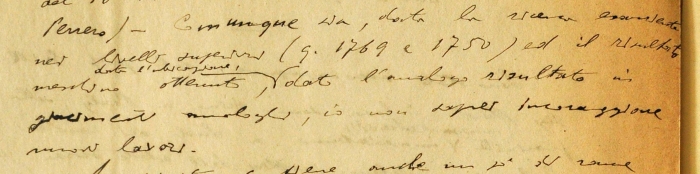 Ferrero) – Comunque sia, data la ricerca esauriente
nei livelli superiori (q. 1769 e 1750) ed il risultato
data l'ubicazione,
meschino ottenuto, dato l'analogo risultato in
giacimenti analoghi, io non saprei incoraggiare
nuovi lavori.
anche un po' di rame